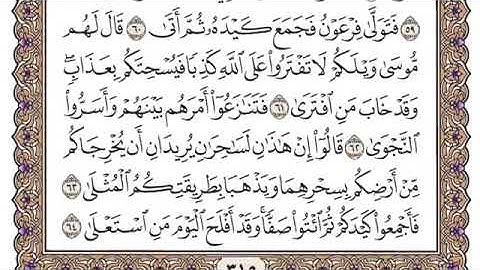 ٥٩ فَتَوَلَّىٰ فِرْعَوْنُ فَجَمَعَ كَيْدَهُۥ ثُمَّ أَتَىٰ ٦٠ قَالَ لَهُم
مُّوسَىٰ وَيْلَكُمْ لَا تَفْتَرُوا۟ عَلَى ٱللَّهِ كَذِبًا فَيُسْحِتَكُم بِعَذَابٍۖ
وَقَدْ خَابَ مَنِ ٱفْتَرَىٰ ٦١ فَتَنَٰزَعُوٓا۟ أَمْرَهُم بَيْنَهُمْ وَأَسَرُّوا۟
ٱلنَّجْوَىٰ ٦٢ قَالُوٓا۟ إِنْ هَٰذَٰنِ لَسَٰحِرَٰنِ يُرِيدَانِ أَن يُخْرِجَاكُم
مِّنْ أَرْضِكُم بِسِحْرِهِمَا وَيَذْهَبَا بِطَرِيقَتِكُمُ ٱلْمُثْلَىٰ ٦٣
فَأَجْمِعُوا۟ كَيْدَكُمْ ثُمَّ ٱئْتُوا۟ صَفًّاۚ وَقَدْ أَفْلَحَ ٱلْيَوْمَ مَنِ ٱسْتَعْلَىٰ ٦٤
٣١٥